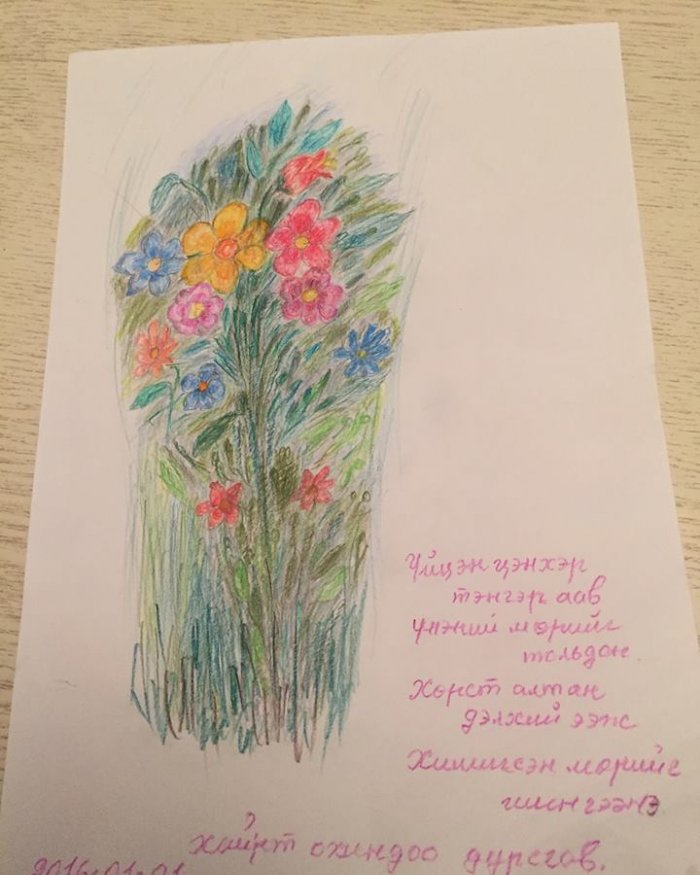 Үйцэн цэнхэр
тэнгэр аав
үнэний мөрийг
тольдон
Хөрст алтан
дэлхий ээж
Хишигсэн мөрийг
гийнгээнэ
хайрт охиндоо дурсгав.
2016.01.01